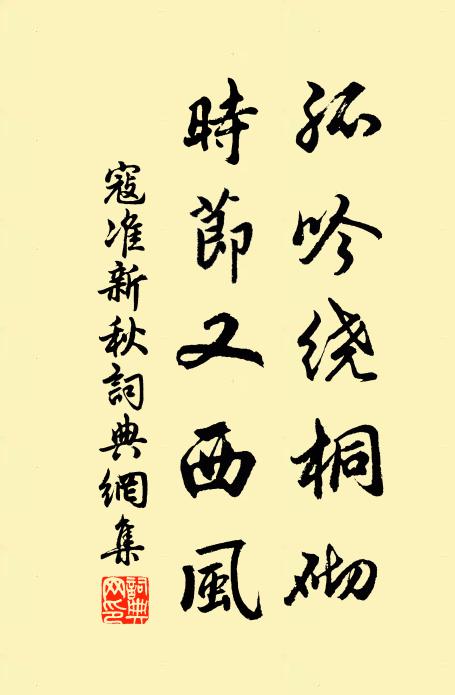 孤吟绕桐砌
時節又西風
寇准新秋詞典網集
詞典网印